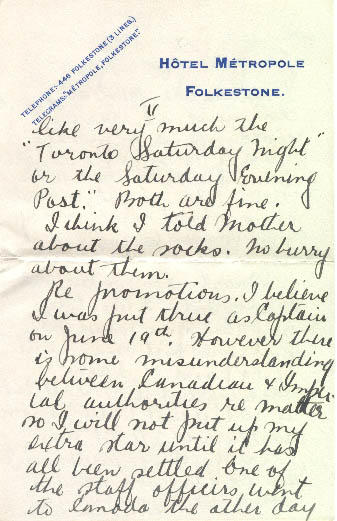 TELEPHONE:- 446 FOLKESTONE (3 LINES.)
TELEGRAMS:- "MÉTROPOLE, FOLKESTONE."
HÔTEL MÉTROPOLE
FOLKESTONE.
II
like very much the
"Toronto Saturday Night"
or the Saturday Evening
Post." Both are fine.
I think I told Mother
about the socks. No hurry
about them.
Re promotions, I believe
I was put thru as Captain
on June 19th. However there
is some misunderstanding
between Canadian & Imper-
ial authorities re matter
so I will not put up my
extra star until it has
all been settled One of
the staff officers went
to Canada the other day